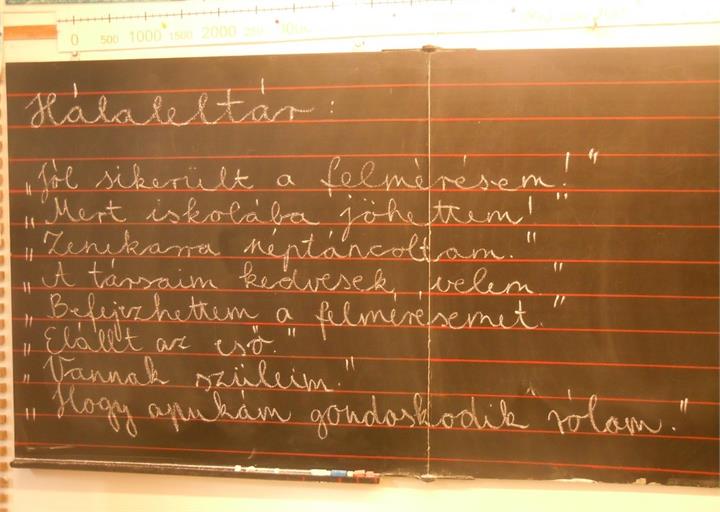 0 500 1000 1500 2000
Hálaleltár:
„Jól sikerült a felmérésem!"
„Mert iskolába jöhettem!"
„Zenekarra néptáncoltam."
„A társaim kedvesek velem."
„Befejezhettem a felmérésemet."
„Elállt az eső."
„Vannak szüleim."
„Hogy apukám gondoskodik rólam."